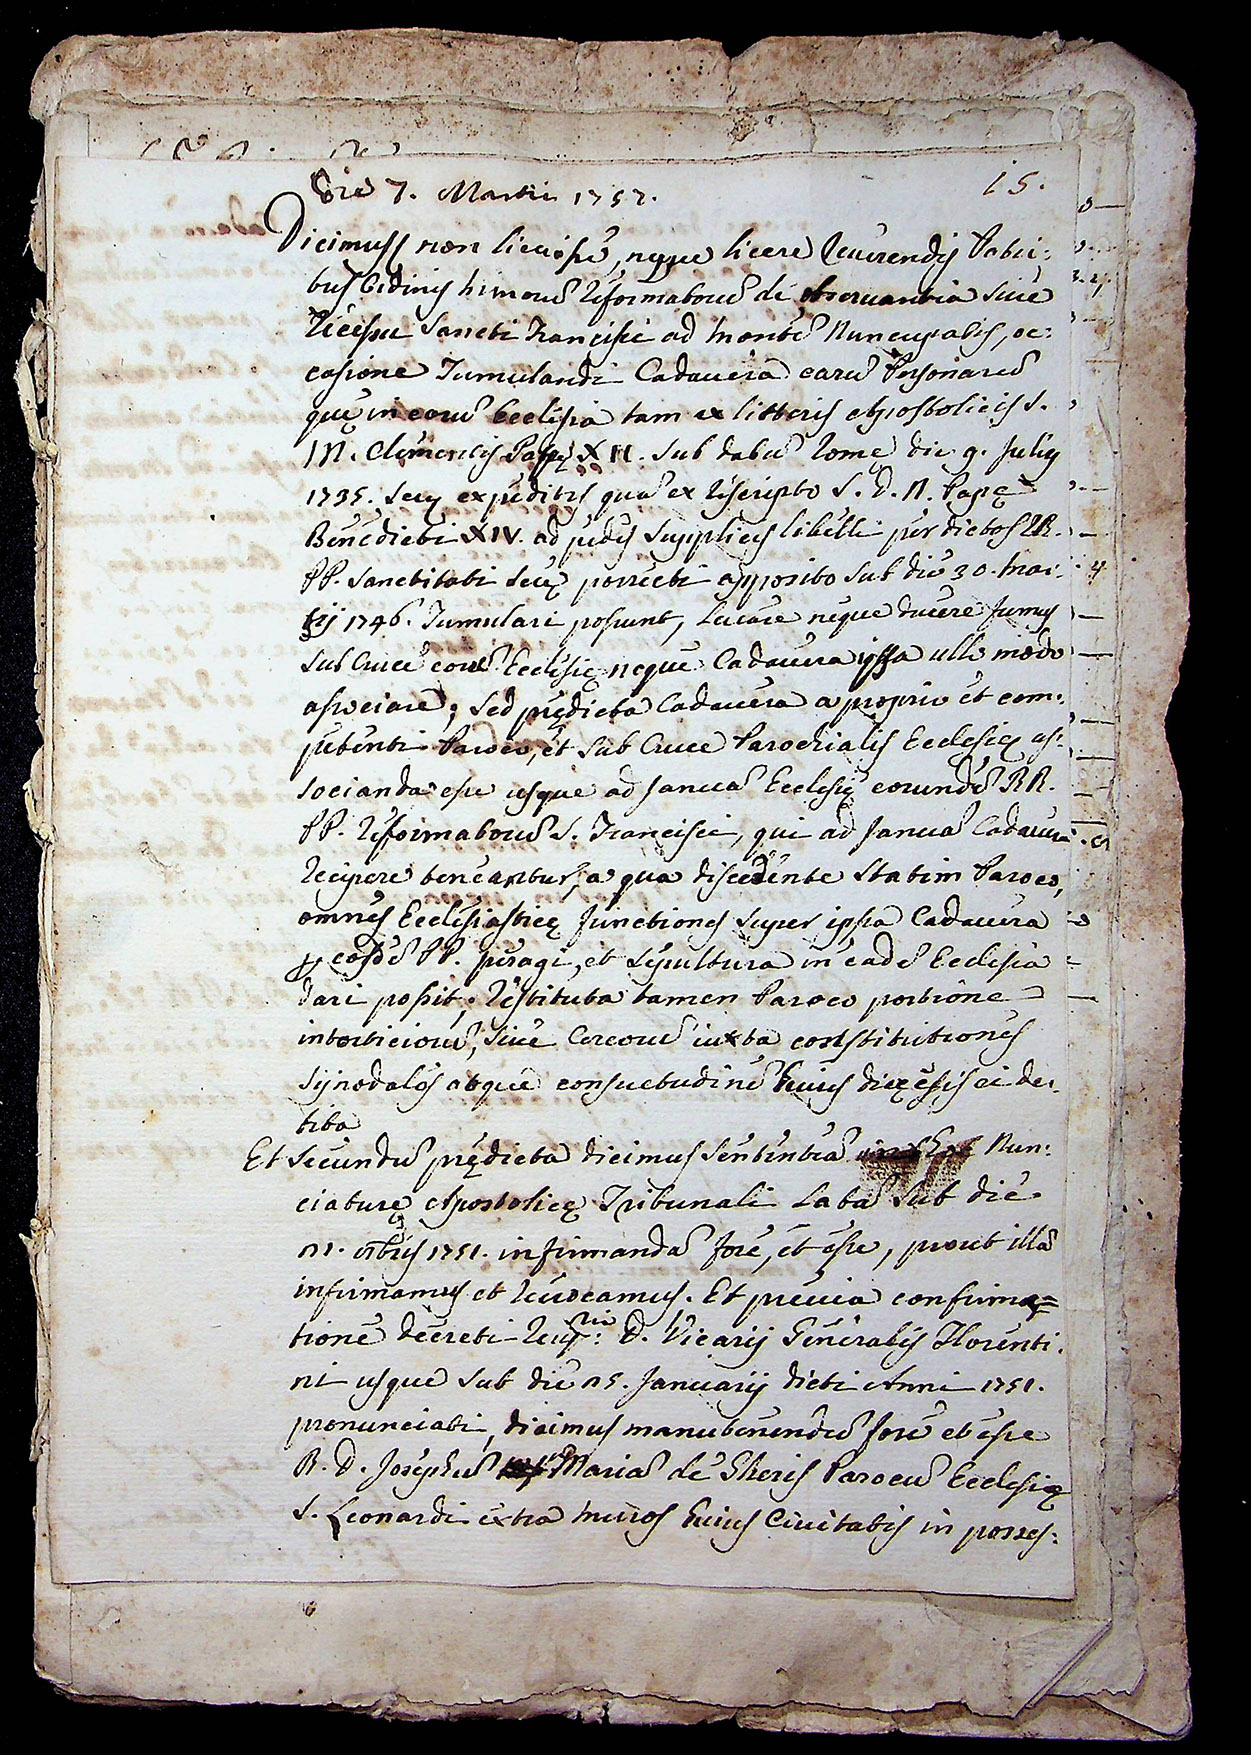 15.
Die 7. Martii 1752.
Dicimus non licuisse, neque licere Reverendis Patri:
bus Ordinis Minorũ Reformatorũ de Observantia sive
Recessu Sancti Francisci ad Montẽ Nuncupatis, oc:
casione Tumulandi Cadavera earũ Personarũ
quę in eorũ Ecclesia tam ex litteris Apostolicis S.
M. Clementis Papę XII. sub datũ Romę die 9. Julij
1735. seu expeditis quã ex Rescripto S. D. N. Papę
Benedicti XIV. ad pedes supplicis libelli per dictos RR.
PP. Sanctitati Suę porrecti apposito sub die 30. Mar:
tij 1746. Tumulari possunt, levare neque ducere funus
sub Cruce eorũ Ecclesię neque Cadavera ipsa ullo modo
associare; sed prędicta Cadavera a proprio et com:
petenti Paroco, et sub Cruce Parochialis Ecclesię as:
socianda esse usque ad Januã Ecclesię eorundẽ RR.
PP. Reformatorũ S. Francisci, qui ad Januã Cadavera
Recipere teneantur, a qua discedente statim Paroco,
omnes Ecclesiasticę functiones super ipsa Cadavera
ꝑ eosdẽ PP. peragi, et sepultura in eadẽ Ecclesia
dari possit; Restituta tamen Paroco portione
intorticiorũ, sive Cereorũ iuxta constitutiones
synodales atque consuetudinẽ huius dięcesis ei de:
bita
Et secundũ prędicta dicimus sententiã Nun:
ciaturę Apostolicę Tribunali Lata sub die
21. 1751. infirmandã fore, et esse, prout illã
infirmamus et Revocamus. Et previa confirma=
tione decreti D. Vicarij Generalis Florenti:
ni usque sub die 25. Januarij dicti Anni 1751.
pronunciati, dicimus manutenendũ fore et esse
R. D. Josephũ Mariã de Gheris Parocũ Ecclesię
S. Leonardi extra muros huius Civitatis in posses: